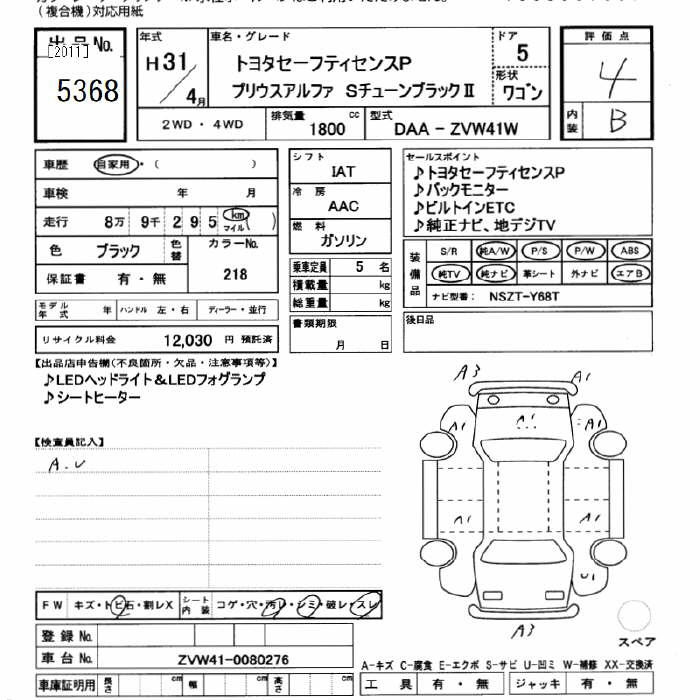 (複合機)対応用紙
出品No.
[2011]
5368
年式
H31/4月
車名・グレード
トヨタセーフティセンスP
プリウスアルファ SチューンブラックⅡ
ドア
5
形状
ワゴン
評価点
4
内装
B
2WD・4WD
排気量
1800
cc
型式
DAA-ZVW41W
車歴
自家用・( )
車検
年 月
走行
8万 9千 2 9 5 km マイル ( )
色
ブラック
色替
カラーNo.
218
保証書
有・無
シフト
IAT
冷房
AAC
燃料
ガソリン
乗車定員 5 名
積載量 kg
総重量 kg
書類期限
月 日
セールスポイント
♪トヨタセーフティセンスP
♪バックモニター
♪ビルトインETC
♪純正ナビ、地デジTV
装備品
S/R 純A/W P/S P/W ABS
純TV 純ナビ 革シート 外ナビ エアB
ナビ型番: NSZT-Y68T
後日品
モデル年式 年
ハンドル 左・右
ディーラー・並行
リサイクル料金 12,030 円 預託済
【出品店申告欄(不良箇所・欠品・注意事項等)】
♪LEDヘッドライト&LEDフォグランプ
♪シートヒーター
【検査員記入】
A.U
A3
A1
A1
A1
A1
A1
A1
U1
A3
スペア
FW キズ・トビ石・割レX
シート内装 コゲ・穴・汚レ・シミ・破レ・スレ
登録No.
車台No. ZVW41-0080276
車庫証明用 長さ cm 幅 cm 高さ cm
A-キズ C-腐食 E-エクボ S-サビ U-凹ミ W-補修 XX-交換済
工具 有・無 ジャッキ 有・無